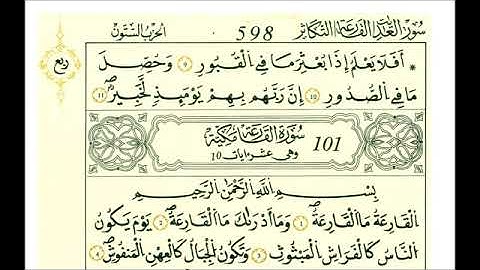 سور العاديات القارعة التكاثر 598 الحزب الستون
ربع
* أَفَلَا يَعْلَمُ إِذَا بُعْثِرَ مَا فِي الْقُبُورِ 9 وَحُصِّلَ
مَا فِي الصُّدُورِ 10 إِنَّ رَبَّهُم بِهِمْ يَوْمَئِذٍ لَّخَبِيرٌ 11
سُورَةُ الْقَارِعَةِ مَكِّيَّة 101
وهي عشر ءايات 10
بِسْمِ اللَّهِ الرَّحْمَٰنِ الرَّحِيمِ
الْقَارِعَةُ مَا الْقَارِعَةُ 1 وَمَا أَدْرَىٰكَ مَا الْقَارِعَةُ 2 يَوْمَ يَكُونُ
النَّاسُ كَالْفَرَاشِ الْمَبْثُوثِ 3 وَتَكُونُ الْجِبَالُ كَالْعِهْنِ الْمَنفُوشِ 4